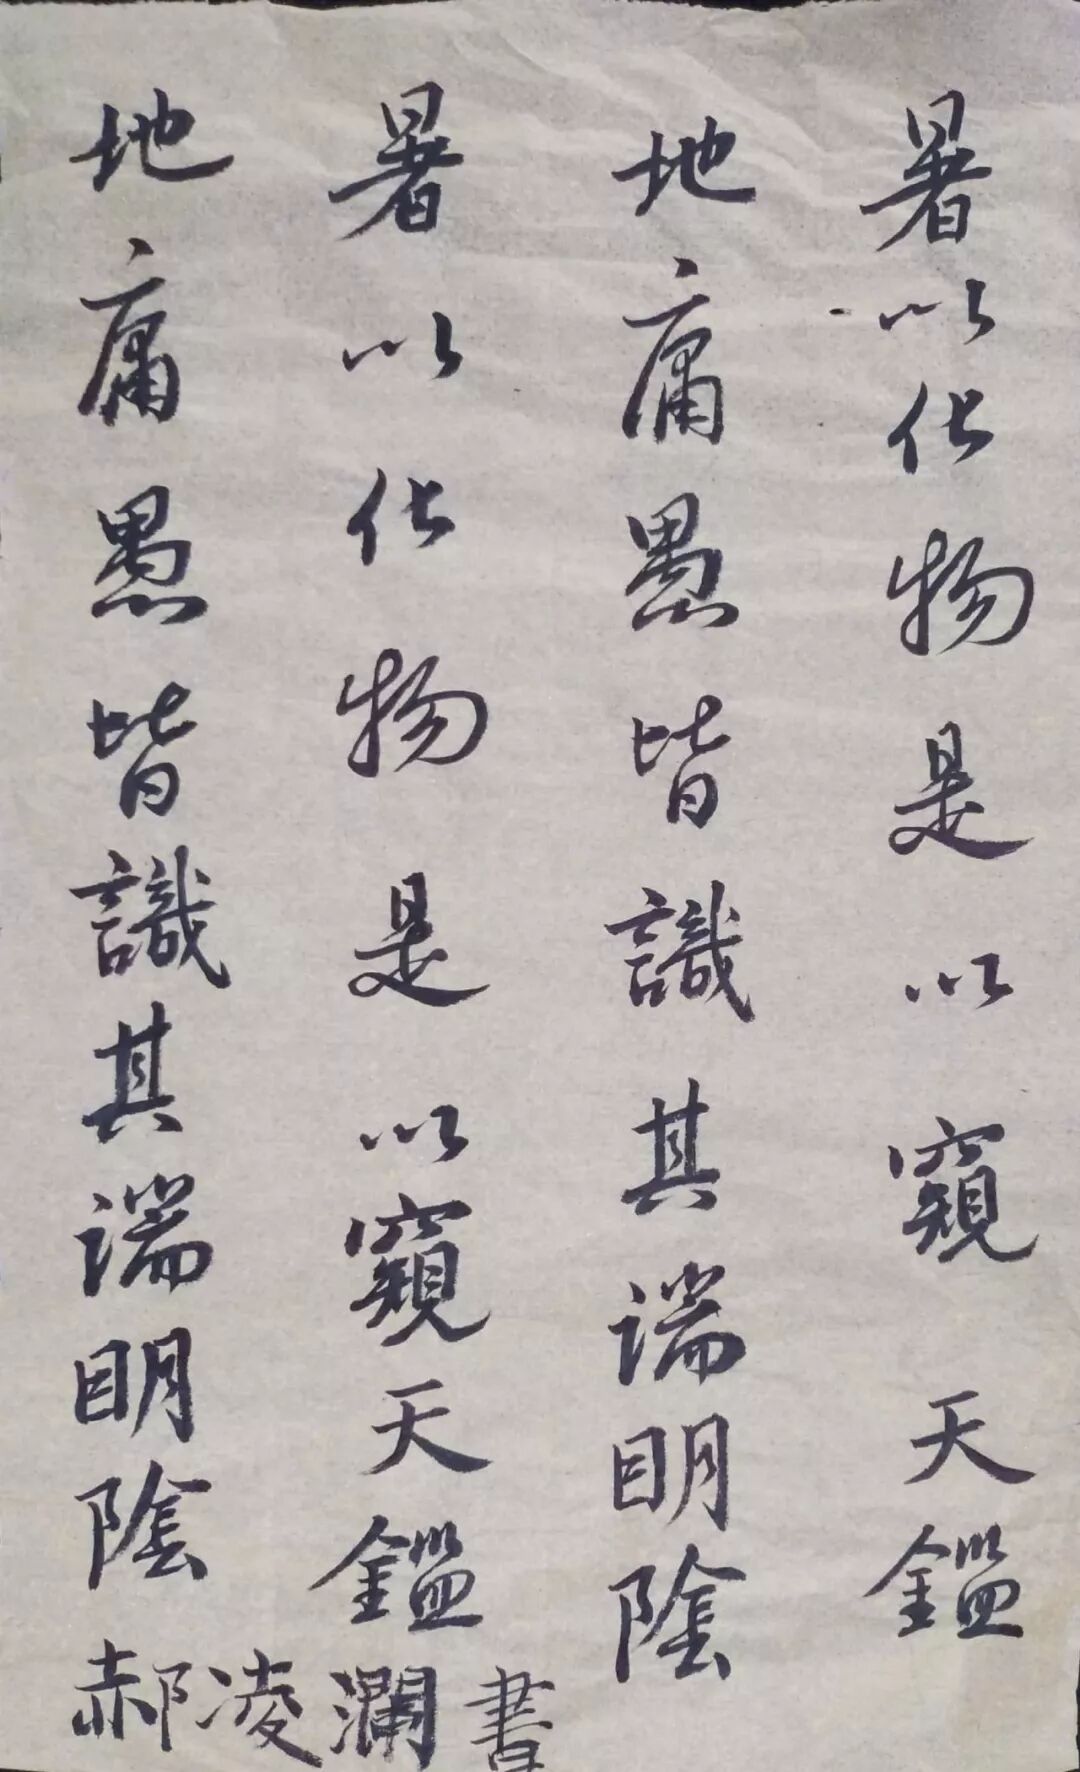 暑以化物是以窺天鑑
地庸愚皆識其端明陰
暑以化物是以窺天鑑
地庸愚皆識其端明陰
郝凌瀾書